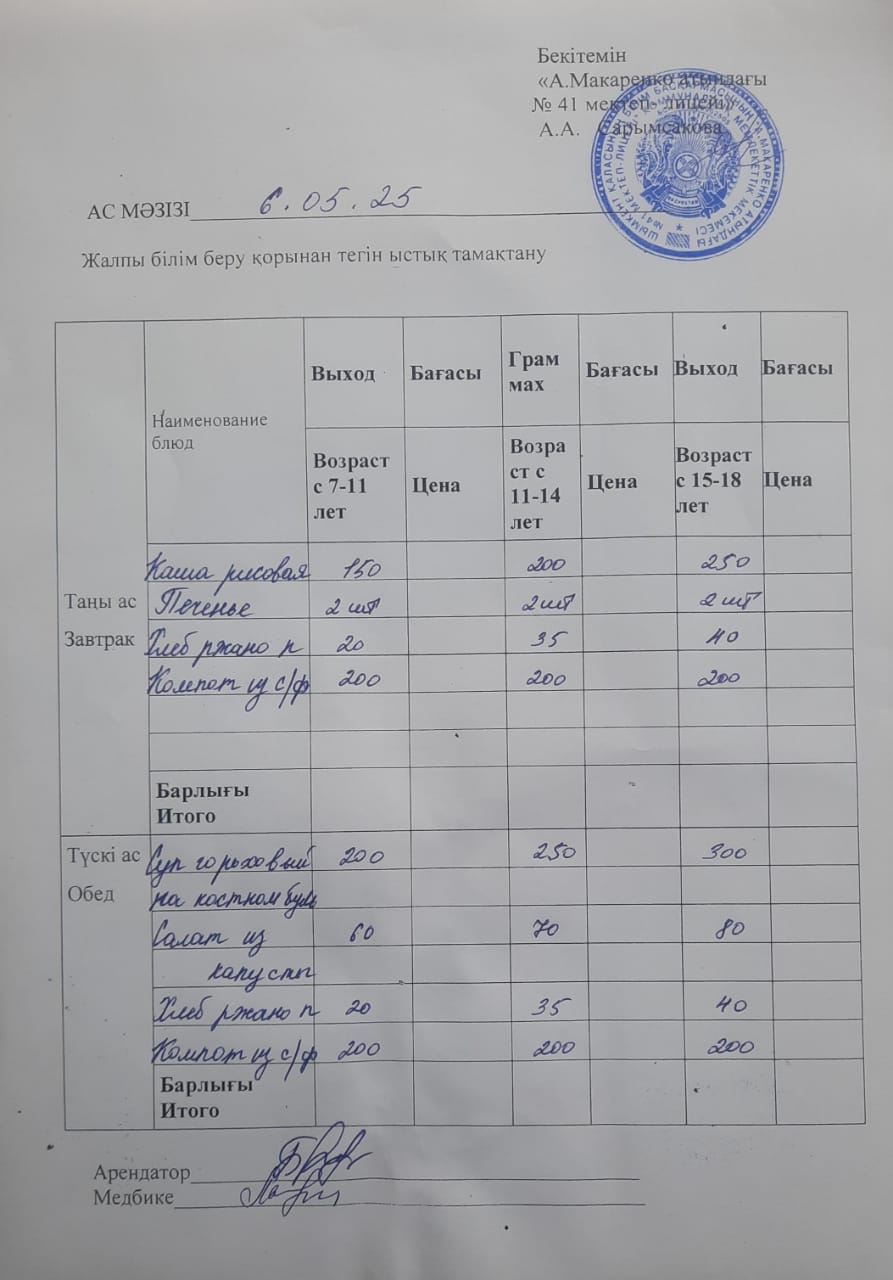 Бекітемін
«А.Макаренко атындағы
№ 41 мектеп- лицейі»
А.А. Сарымсакова
АС МӘЗІЗІ 6.05.25
Жалпы білім беру қорынан тегін ыстық тамақтану
Наименование блюд
Выход Бағасы Грам мах Бағасы Выход Бағасы
Возраст с 7-11 лет Цена Возра ст с 11-14 лет Цена Возраст с 15-18 лет Цена
Таңы ас
Завтрак
Каша рисовая 150 200 250
Печенье 2 шт 2 шт 2 шт
Хлеб ржано п 20 35 40
Компот из с/ф 200 200 200
Барлығы
Итого
Түскі ас
Обед
Суп гороховый 200 250 300
на костном буль
Салат из 60 70 80
капусты
Хлеб ржано п 20 35 40
Компот из с/ф 200 200 200
Барлығы
Итого
Арендатор
Медбике